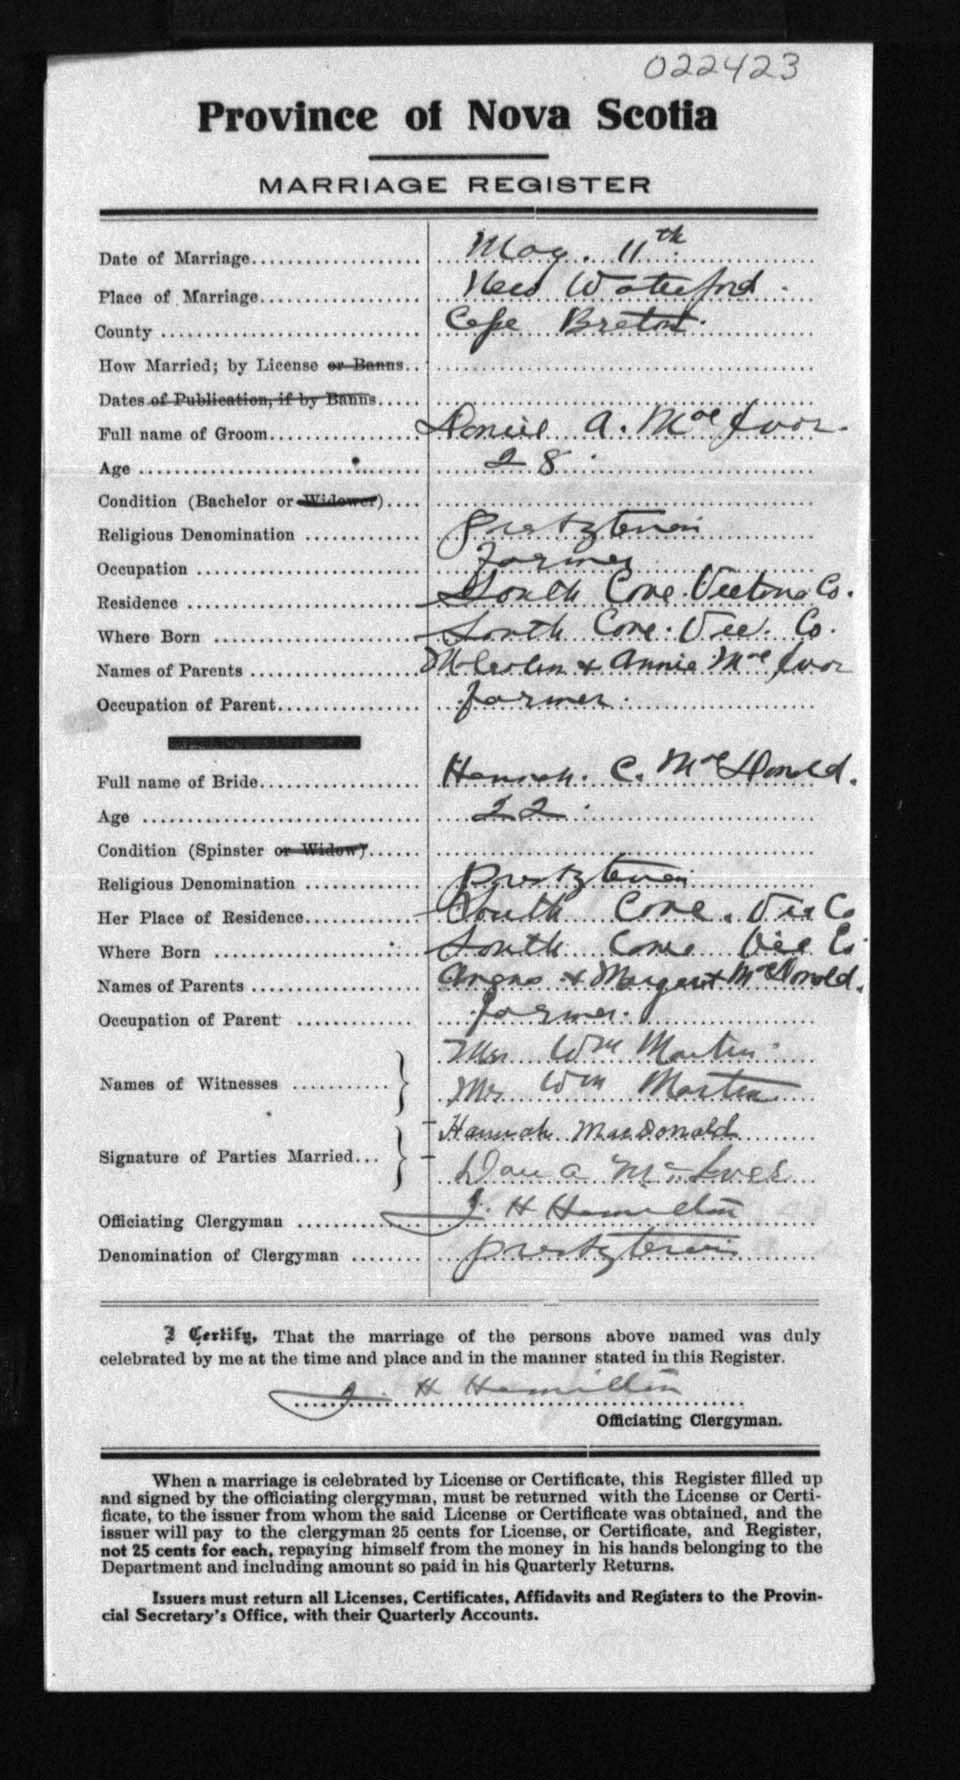 022423
Province of Nova Scotia
MARRIAGE REGISTER
Date of Marriage.................... May. 11th
Place of Marriage.................... New Waterford.
County .................... Cape Breton.
How Married; by License or Banns..
Dates of Publication, if by Banns.....
Full name of Groom.................... Daniel A. Mac Ivor.
Age .................... 28
Condition (Bachelor or Widower)....
Religious Denomination ............ Presbyterian
Occupation .................... Farmer
Residence .................... South Cove Victoria Co.
Where Born .................... South Cove. Vic. Co.
Names of Parents .................... Malcolm & Annie Mac Ivor
Occupation of Parent.................... farmer.
Full name of Bride.................... Hannah. C. McDonald.
Age .................... 22
Condition (Spinster or Widow)......
Religious Denomination ............ Presbyterian
Her Place of Residence............ South Cove. Vic Co
Where Born .................... South Cove Vic Co
Names of Parents .................... Angus & Margaret McDonald.
Occupation of Parent ............ farmer.
Names of Witnesses ........... } Mrs Wm Martin
Mr Wm Martin
Signature of Parties Married... } Hannah MacDonald
Dan A Mc Iver
Officiating Clergyman ............ J. H Hamilton
Denomination of Clergyman ........ Presbyterian
I Certify, That the marriage of the persons above named was duly
celebrated by me at the time and place and in the manner stated in this Register.
J. H Hamilton
Officiating Clergyman.
When a marriage is celebrated by License or Certificate, this Register filled up
and signed by the officiating clergyman, must be returned with the License or Certi-
ficate, to the issuer from whom the said License or Certificate was obtained, and the
issuer will pay to the clergyman 25 cents for License, or Certificate, and Register,
not 25 cents for each, repaying himself from the money in his hands belonging to the
Department and including amount so paid in his Quarterly Returns.
Issuers must return all Licenses, Certificates, Affidavits and Registers to the Provin-
cial Secretary's Office, with their Quarterly Accounts.